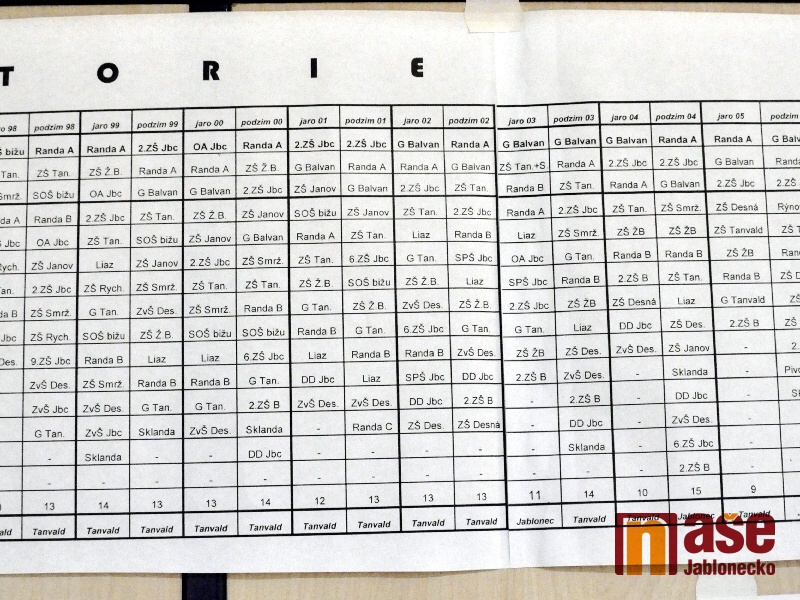 T O R I E
98 podzim 98 jaro 99 podzim 99 jaro 00 podzim 00 jaro 01 podzim 01 jaro 02 podzim 02 jaro 03 podzim 03 jaro 04 podzim 04 jaro 05
bižu Randa A Randa A 2.ZŠ Jbc OA Jbc Randa A 2.ZŠ Jbc 2.ZŠ Jbc G Balvan G Balvan G Balvan G Balvan G Balvan G Balvan Randa A G Balvan
Tan. ZŠ Tan. ZŠ Ž.B. Randa A Randa A ZŠ Ž.B. G Balvan Randa A Randa A Randa A ZŠ Tan.+S Randa A 2.ZŠ Jbc 2.ZŠ Jbc G Balvan Randa A
Smrž. SOŠ bižu OA Jbc G Balvan G Balvan 2.ZŠ Jbc ZŠ Janov G Balvan 2.ZŠ Jbc ZŠ Tan. Randa B ZŠ Tan. Randa A G Balvan 2.ZŠ Jbc 2.ZŠ
Randa B 2.ZŠ Jbc ZŠ Tan. ZŠ Ž.B. ZŠ Janov SOŠ bižu ZŠ Janov ZŠ Tan. 2.ZŠ Jbc Randa A 2.ZŠ Jbc ZŠ Tan. ZŠ Smrž. ZŠ Desná
Jbc OA Jbc ZŠ Tan. SOŠ bižu ZŠ Janov G Balvan Randa A ZŠ Tan. Liaz Randa B Liaz ZŠ Smrž. ZŠ ŽB ZŠ ŽB ZŠ Tanvald
Rych. ZŠ Janov Liaz ZŠ Janov 2.ZŠ Jbc ZŠ Smrž. ZŠ Tan. 6.ZŠ Jbc G Tan. SPŠ Jbc OA Jbc G Tan. Randa B Randa B ZŠ ŽB
Tan. 2.ZŠ Jbc ZŠ Rych. ZŠ Smrž. ZŠ Tan. ZŠ Tan. ZŠ Ž.B. SOŠ bižu ZŠ Ž.B. Liaz SPŠ Jbc Randa B 2.ZŠ B ZŠ Tan. Randa B
ZŠ Smrž. G Tan. ZvŠ Des. ZŠ Smrž. Randa B G Tan. ZŠ Ž.B. ZvŠ Des. ZŠ Ž.B. 2.ZŠ Jbc ZŠ ŽB ZŠ Desná Liaz G Tanvald
Jbc ZŠ Rych. SOŠ bižu ZŠ Ž.B. SOŠ bižu SOŠ bižu Randa B G Tan. 6.ZŠ Jbc G Tan. G Tan. Liaz DD Jbc ZŠ Des. 2.ZŠ B
Des. 9.ZŠ Jbc Randa B Liaz Liaz 6.ZŠ Jbc Liaz Randa B Randa B ZvŠ Des. ZŠ ŽB ZŠ Des. - ZŠ Janov -
ZvŠ Des. ZŠ Smrž. Randa B Randa B G Tan. DD Jbc Liaz SPŠ Jbc DD Jbc 2.ZŠ B ZvŠ Des. - Sklanda -
ZvŠ Jbc ZvŠ Des. G Tan. G Tan. 2.ZŠ B ZvŠ Des. ZvŠ Des. DD Jbc 2.ZŠ B - 2.ZŠ B - DD Jbc -
G Tan. ZvŠ Jbc Sklanda ZvŠ Des. Sklanda - Randa C ZŠ Des. ZŠ Desná - DD Jbc - ZvŠ Des. -
- Sklanda - - DD Jbc - - - - - Sklanda - 6.ZŠ Jbc -
- - - - - - - - - - - - 2.ZŠ B -
13 14 13 13 14 12 13 13 13 11 14 10 15 9
Tanvald Tanvald Tanvald Tanvald Tanvald Tanvald Tanvald Tanvald Tanvald Jablonec Tanvald Tanvald Jablonec Tanvald
naše
Jablonecko